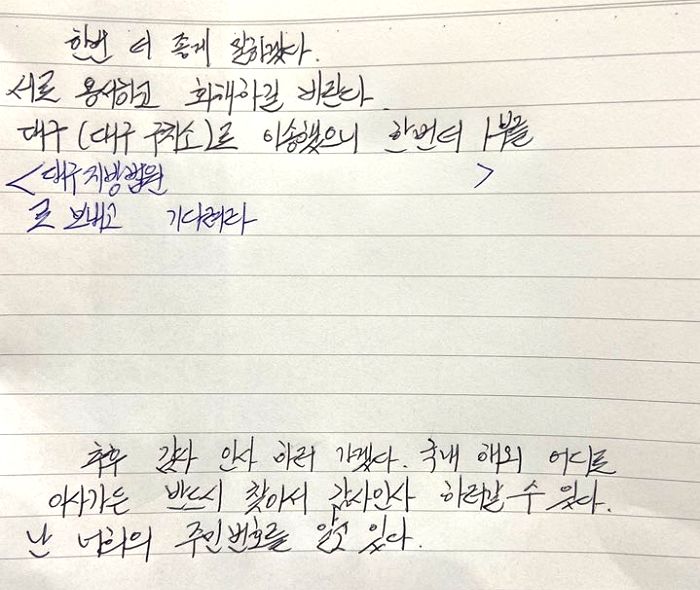 한번 더 좋게 말하겠다.
서로 용서하고 화해하길 바란다.
대구 (대구 구치소)로 이송했으니 한번더 1부를
<대구지방법원 >
로 보내고 기다려라
추후 감사 인사 하러 가겠다. 국내 해외 어디로
이사가든 반드시 찾아서 감사인사 하러갈 수 있다.
난 너희의 주민번호를 알고 있다.